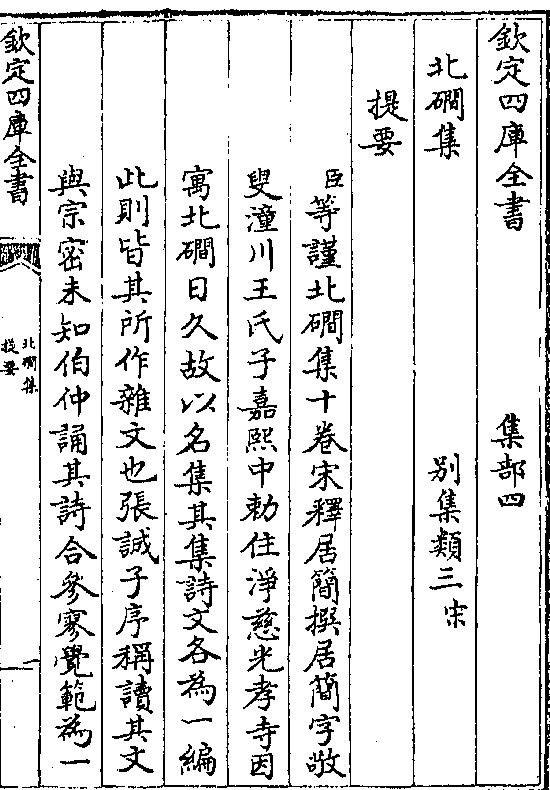 欽定四庫全書　集部四
北磵集　別集類三宋
提要
臣等謹北磵集十卷宋釋居簡撰居簡字敬
叟潼川王氏子嘉熙中勅住淨慈光孝寺因
寓北磵日久故以名集其集詩文各為一編
此則皆其所作雜文也張誠子序稱讀其文
與宗密未知伯仲誦其詩合參寥覺範為一
欽定四庫全書
北磵集
提要
一